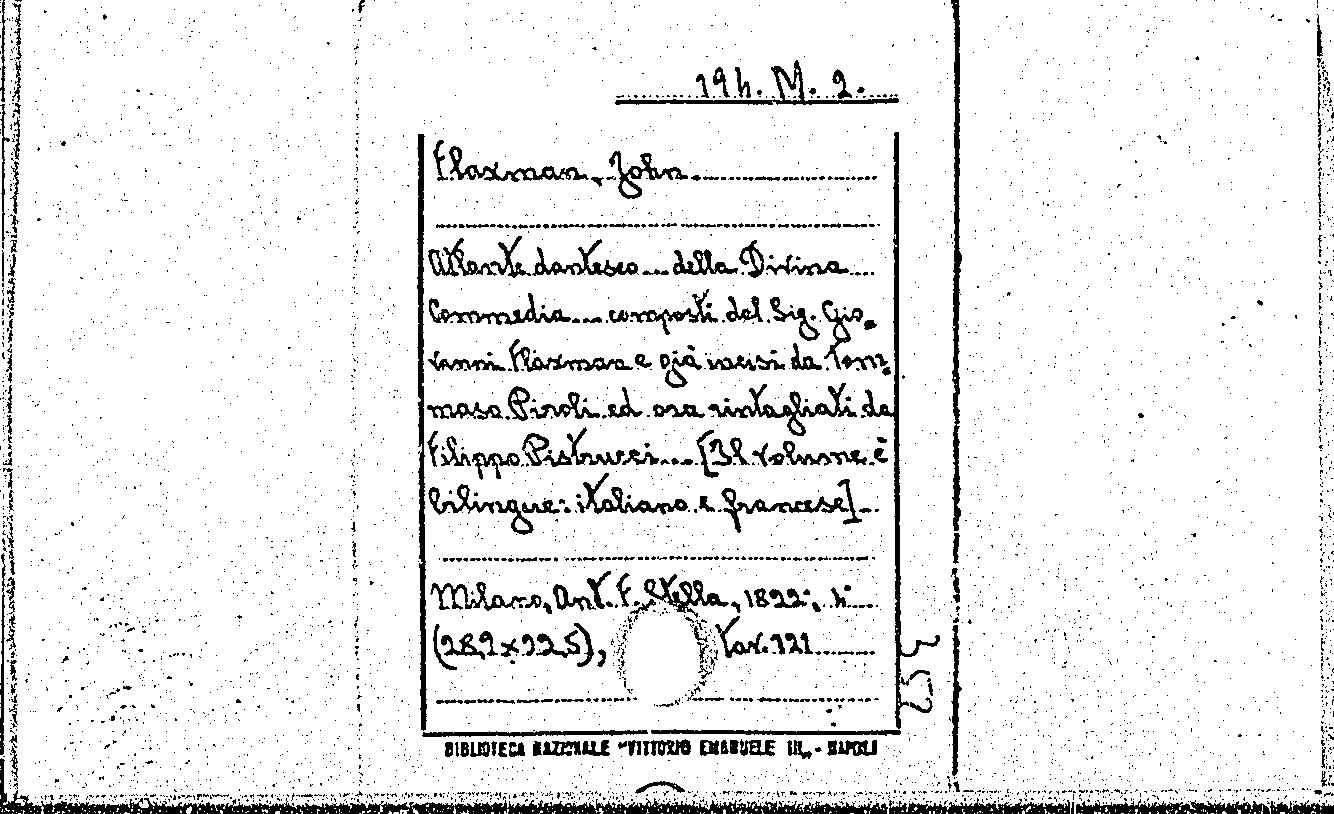 194. M. 2.
Flaxman, John
Atlante dantesco... della Divina
Commedia... composti dal Sig. Gio=
vanni Flaxman e già incisi da Tom=
maso Piroli ed ora rintagliati da
Filippo Pistrucci... [Il volume è
bilingue: italiano e francese]
Milano, Ant. F. Stella, 1822; 4°
(28,2x22,5), Tav. 121
BIBLIOTECA NAZIONALE "VITTORIO EMANUELE III„ - NAPOLI